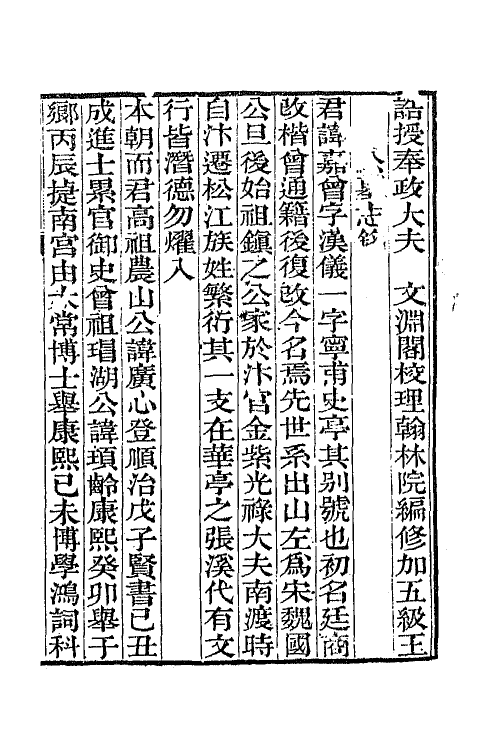 誥授奉政大夫　文淵閣校理翰林院編修加五級王
墓志銘
君諱嘉曾字漢儀一字寧甫史亭其别號也初名廷商
改楷曾通籍後復改今名焉先世系出山左爲宋魏國
公旦後始祖鎭之公家於汴官金紫光祿大夫南渡時
自汴遷松江族姓繁衍其一支在華亭之張溪代有文
行皆潛德勿燿入
本朝而君高祖農山公諱廣心登順治戊子賢書己丑
成進士累官御史曾祖瑁湖公諱頊齡康熙癸卯舉于
鄉丙辰捷南宮由太常博士舉康熙己未博學鴻詞科